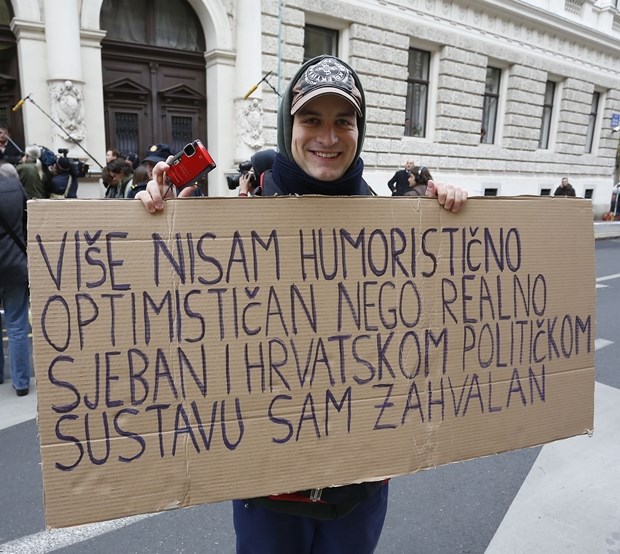 VIŠE NISAM HUMORISTIČNO
OPTIMISTIČAN NEGO REALNO
SJEBAN I HRVATSKOM POLITIČKOM
SUSTAVU SAM ZAHVALAN